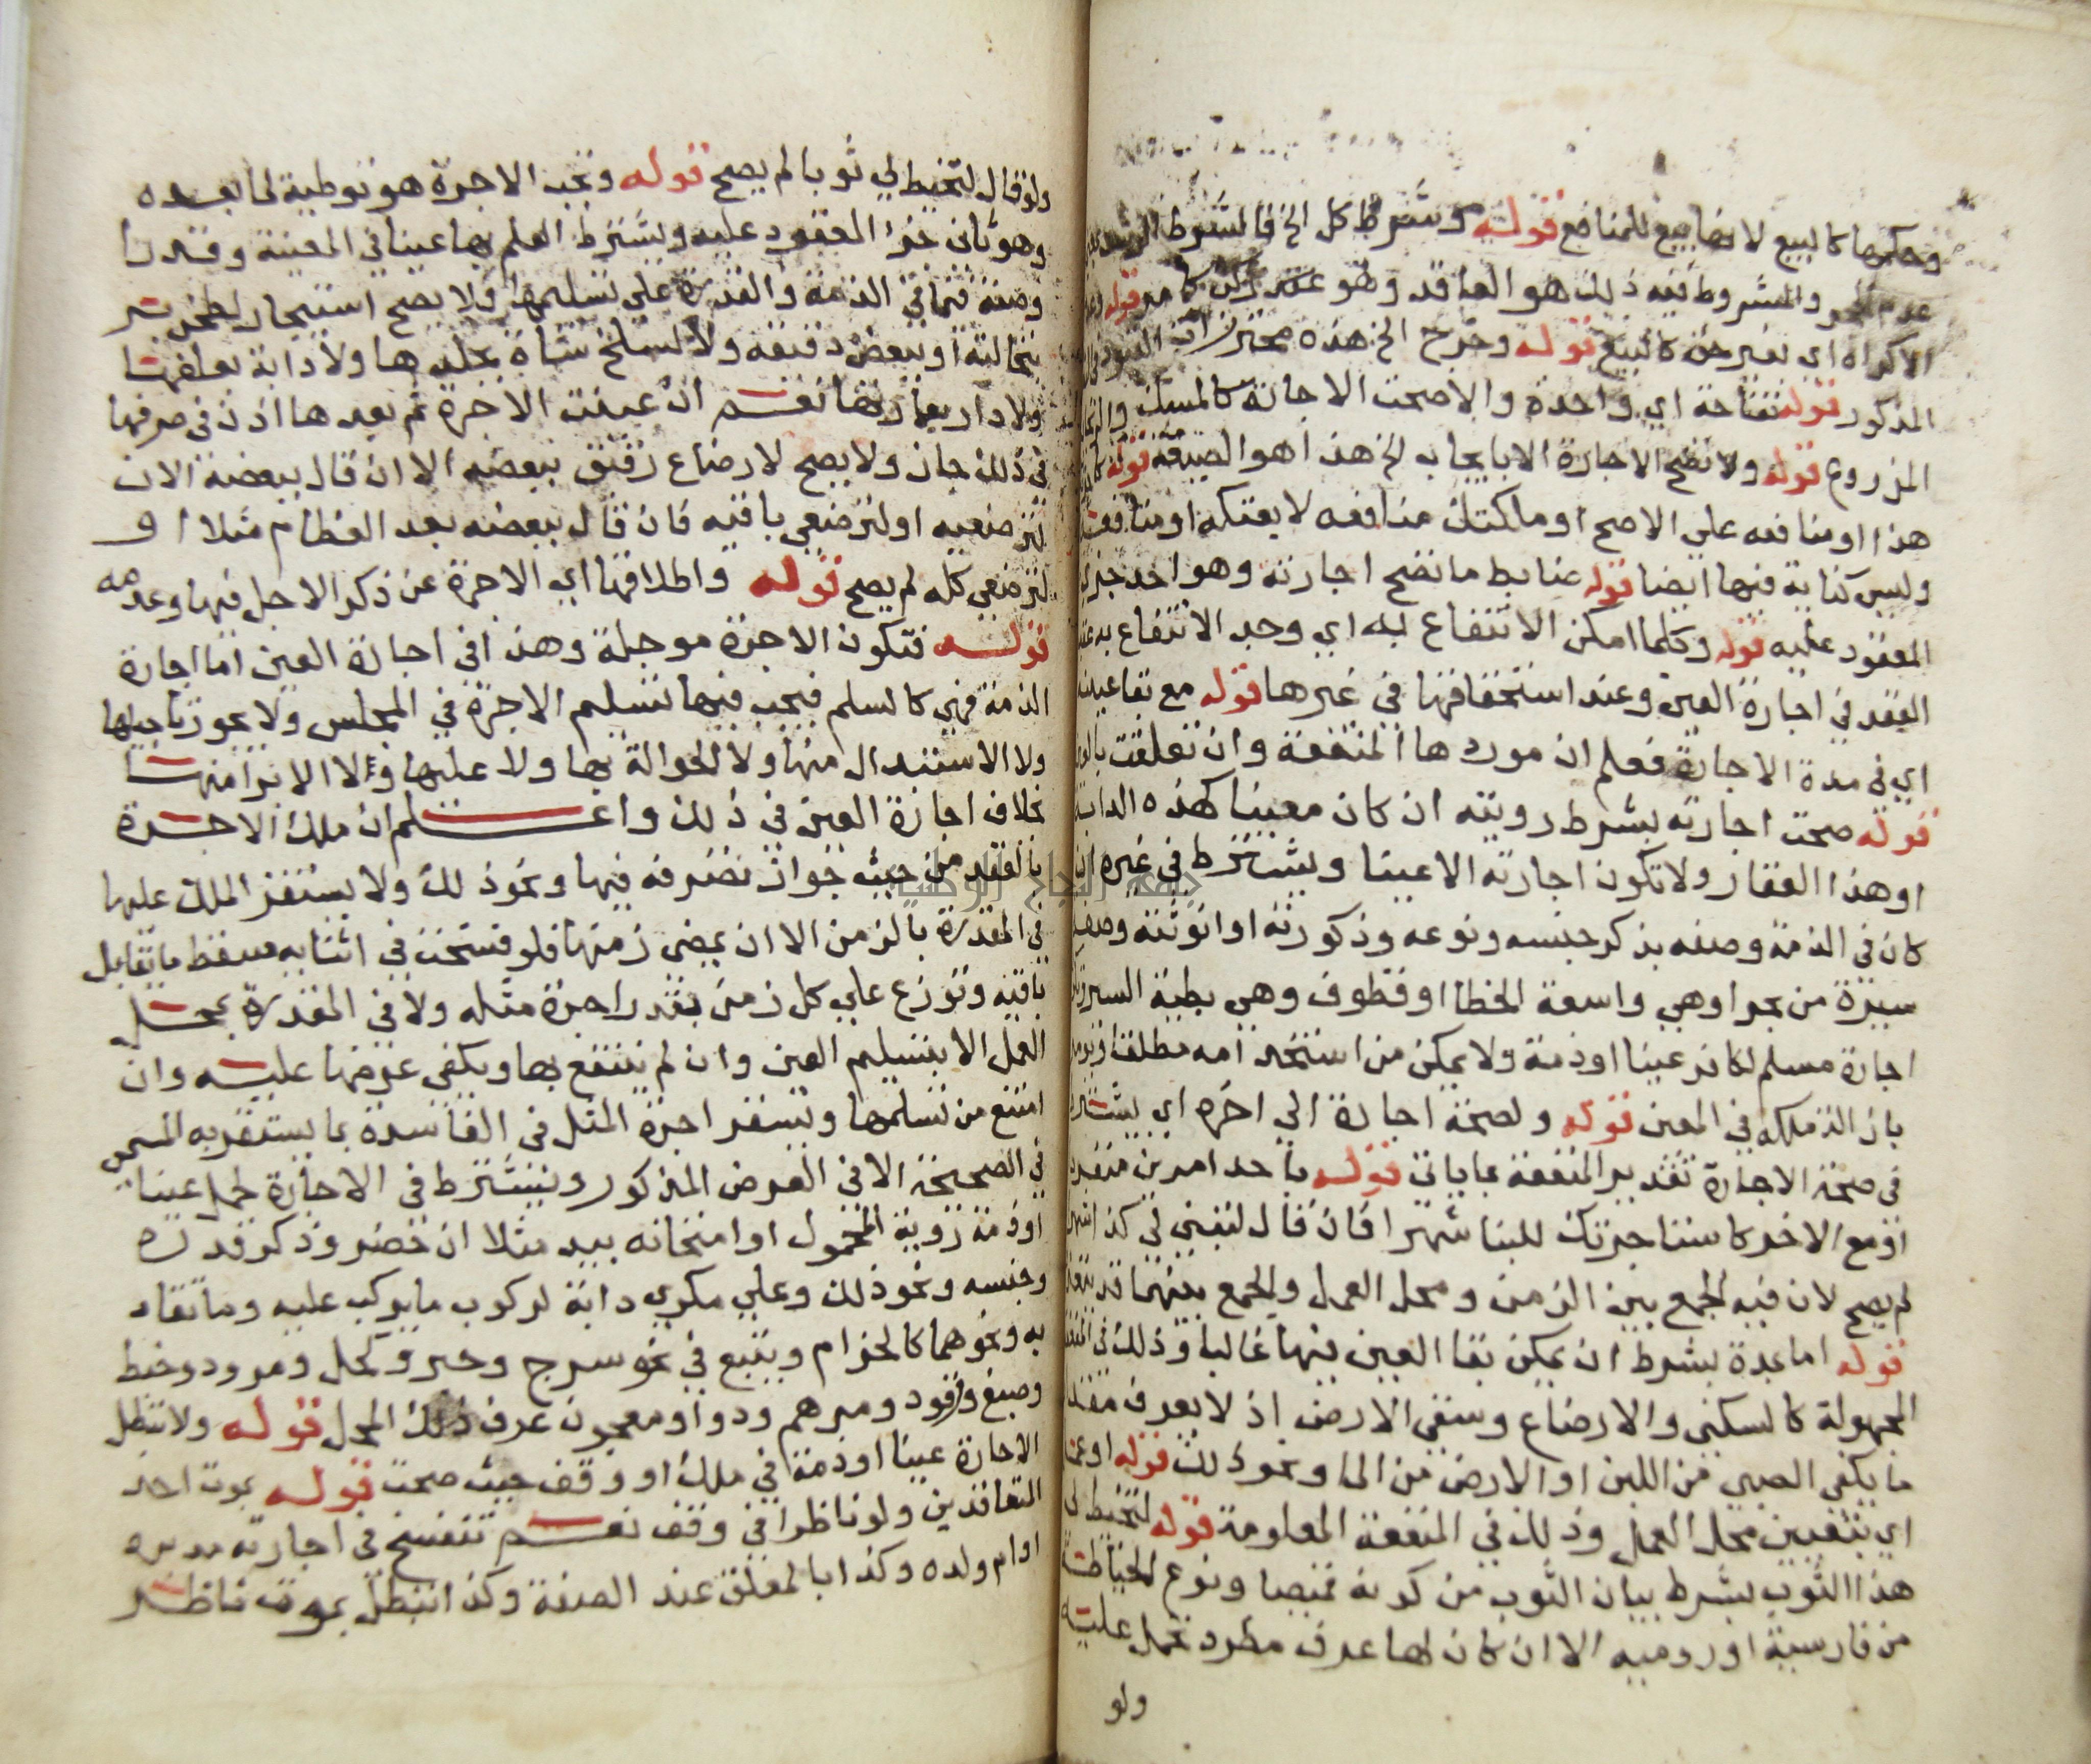 وحكمها كالبيع لانها بيع للمنافع قوله وشرط كل الخ فالشرط
عدم الحجر والمشروط فيه ذلك هو العاقد وهو
الاكراه اى بغير حق كالبيع قوله وخرج الخ هذه محترزات القيود
المذكور قوله تفاحة اي واحدة والا صحت الاجارة كالمسك
المزروع قوله ولا تصح الاجارة الا بايجاب الخ هذا هو الصيغة قوله
هذا او منافعه على الاصح او ملكتك منافعه لا بعتكه او منافعه
وليس كناية فيها ايضا قوله ضابط ما تصح اجارته وهو احد جزئي
المعقود عليه قوله وكلما امكن الانتفاع به اي وجد الانتفاع به عند
العقد في اجارة العين وعند استحقاقها في غيرها قوله مع بقا عينه
اي في مدة الاجارة فعلم ان موردها المنفعة وان تعلقت بالعين
قوله صحت اجارته بشرط رويته ان كان معينا كهذه الدابة
او هذا العقار ولا تكون اجارته الا عينا ويشترط في غيره ان
كان في الذمة وصفه بذكر جنسه ونوعه وذكورته او انوثته وصفة
سيره من بحر اوهي واسعة الخطا او قطوف وهي بطية السير
اجارة مسلم لكافر عينا او ذمة ولا يمكن من استخدامه مطلقا
بازالة ملكه في المعين قوله ولصحة اجارة الي اخره اي يشترط
في صحة الاجارة تقدير المنفعة بما ياتي قوله باحد امرين منفردة
او مع الاخر كاستاجرتك للبنا شهرا فان قال لتبني لي كذا شهرا
لم يصح لان فيه الجمع بين الزمن ومحل العمل والجمع بينهما قد يتعذر
قوله اما بمدة بشرط ان يمكن بقا العين فيها غالبا وذلك في المنفعة
المجهولة كالسكنى والارضاع وسقي الارض اذ لا يعرف مقدار
ما يكفي الصبي من اللبن او الارض من الما ونحو ذلك قوله او عمل
اي بتعيين محل العمل وذلك في المنفعة المعلومة قوله لتخيط لي
هذا الثوب بشرط بيان الثوب من كونه قميصا ونوع الخياطة
من فارسية او رومية الا ان كان لها عرف مطرد تحمل عليه
ولو
ولو قال لتخيط لي ثوبا لم يصح قوله وتجب الاجرة هو توطية لما بعده
وهو ثاني جزا المعقود عليه ويشترط العلم بها عينا في المعينة وقدرا
وصفة فيما في الذمة والقدرة على تسليمها ولا يصح استيجار لطحن بر
بنخالته او ببعض دقيقه ولا لسلخ شاة بجلدها ولا دابة بعلفها
ولا دار بعمارتها نعم ان عينت الاجرة ثم بعدها اذن في صرفها
في ذلك جاز ولا يصح لارضاع رقيق ببعضه الا ان قال ببعضه الان
لترضعيه او لترضعي باقيه فان قال ببعضه بعد الفطام مثلا او
لترضعي كله لم يصح قوله واطلاقها اي الاجرة عن ذكر الاجل فيها وعدمه
قوله فتكون الاجرة موجلة وهذا في اجارة العين اما اجارة
الذمة فهي كالسلم فيجب فيها تسليم الاجرة في المجلس ولا يجوز تاجيلها
ولا الاستبدال منها ولا الحوالة بها ولا عليها ولا الابرا منها
بخلاف اجارة العين في ذلك واعلم ان ملك الاجرة
بالعقد من حيث جواز تصرفه فيها ونحو ذلك ولا يستقر الملك عليها
في المقدرة بالزمن الا ان يمضي زمنها فلو فسخت في اثنايه سقط ما تقابل
باقيه وتوزع على كل زمن بقدر اجرة مثله ولا في المقدرة بمحل
العمل الا بتسليم العين وان لم ينتفع بها ويكفي عرضها عليه وان
امتنع من تسلمها وتستقر اجرة المثل في الفاسدة بما يستقر به المسمى
في الصحيحة الا في العرض المذكور ويشترط في الاجارة لحمل عينا
او ذمة روية المحمول او امتحانه بيد مثلا ان حضر وذكر قدره
وجنسه ونحو ذلك وعلي مكري دابة لركوب ما يركب عليه وما تقاد
به ونحوهما كالحزام ويتبع في نحو سرج وحبر وكحل ومرود وخيط
وصبغ وقود ومرهم ودوا ومعجون عرف ذلك المحل قوله ولا تبطل
الاجارة عينا او ذمة في ملك او وقف حيث صحت قوله بموت احد
المتعاقدين ولو ناظرا في وقف نعم تنفسخ في اجارته مدبره
او ام ولده وكذا بالمعلق عند الصفة وكذا تبطل بموت ناظر